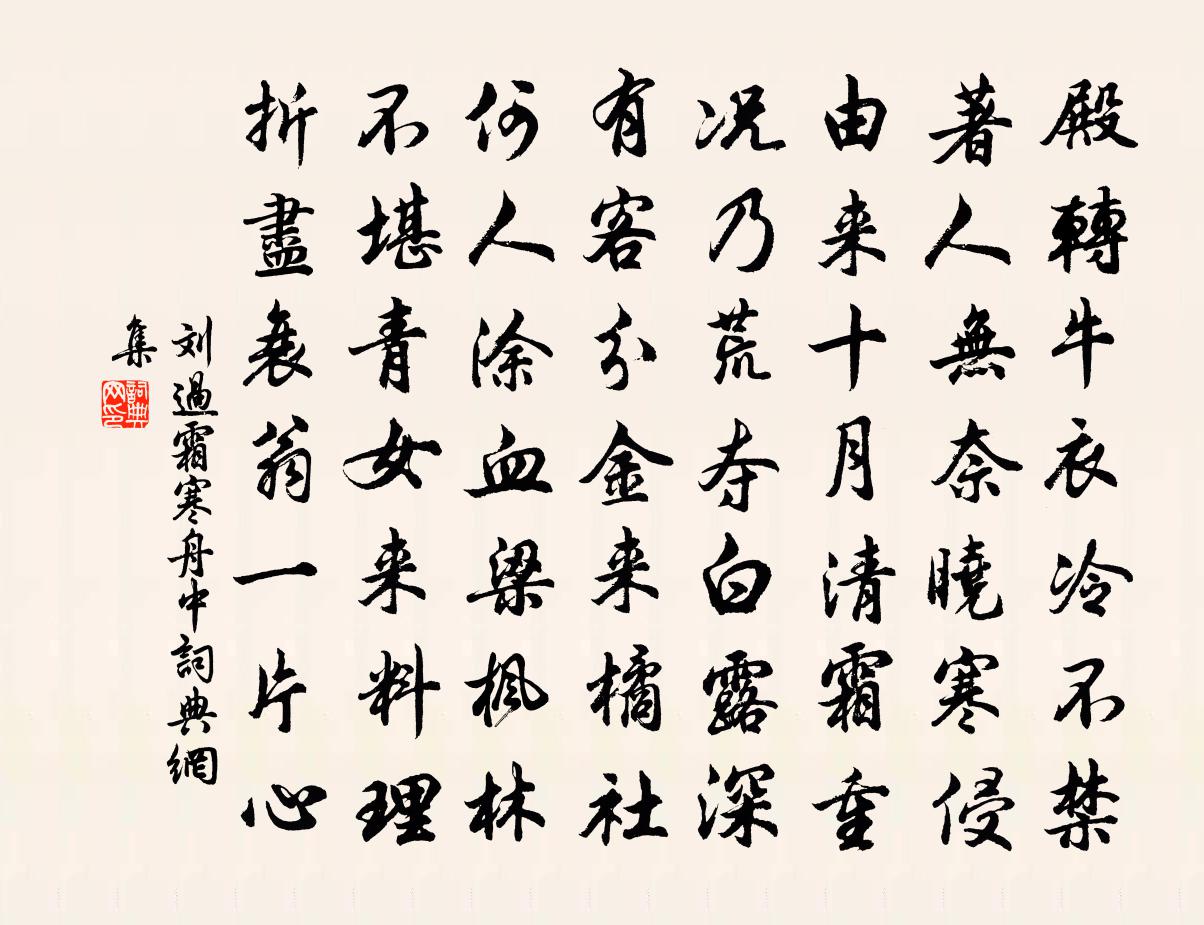 殿轉牛衣冷不禁
著人無奈曉寒侵
由来十月清霜重
況乃荒夺白露深
有客分金来橘社
何人涂血梁楓林
不堪青女来料理
折盡衰翁一片心
刘過霜寒舟中詞典網
集
詞典網印